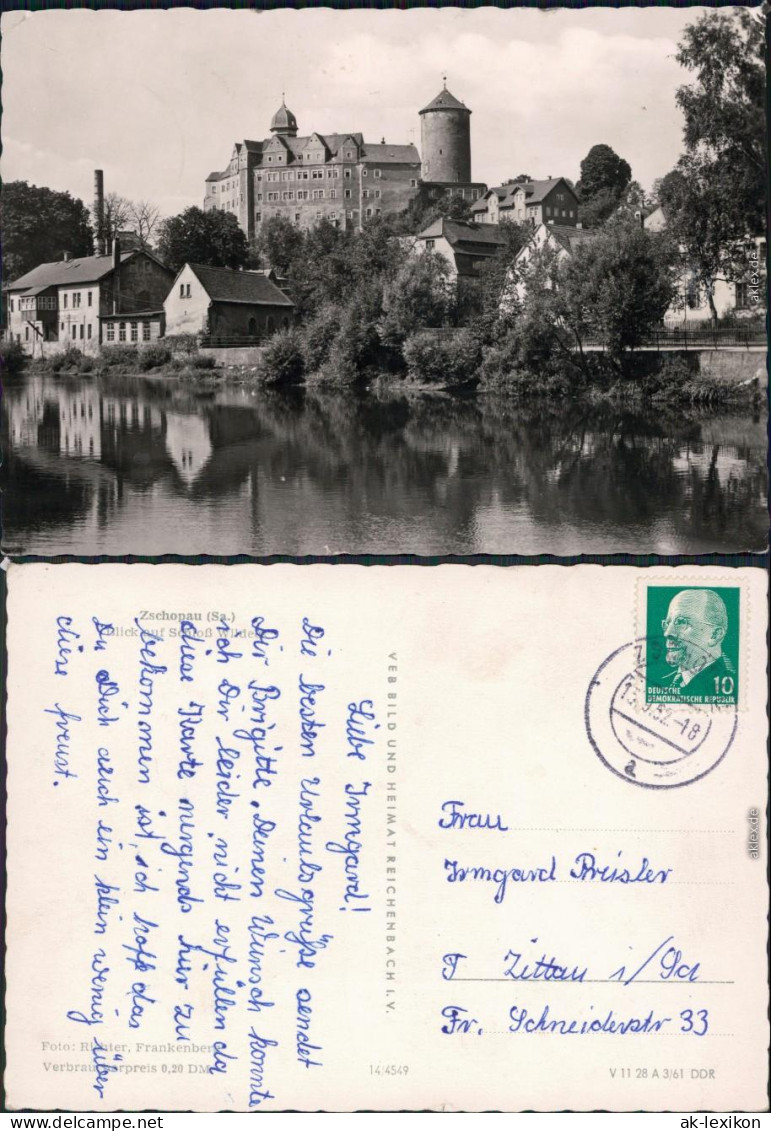 Zschopau (Sa.)
Blick auf Schloß
Liebe Irmgard!
Die besten Urlaubsgrüße sendet
Dir Brigitte. Deinen Wunsch konnte
ich Dir leider nicht erfüllen da
diese Karte nirgends hier zu
bekommen ist, ich hoffe das
Du Dich auch ein klein wenig über
diese freust.
Foto: Richter, Frankenberg
Verbraucherpreis 0,20 DM
VEB BILD UND HEIMAT REICHENBACH I. V.
14/4549
V 11 28 A 3/61 DDR
10
DEUTSCHE
DEMOKRATISCHE REPUBLIK
a
Frau
Irmgard Preisler
Zittau i/Sa
Fr. Schneiderstr 33
aklex.de
aklex.de
© Copyright by ak-lexikon.de
ak-lexikon.com